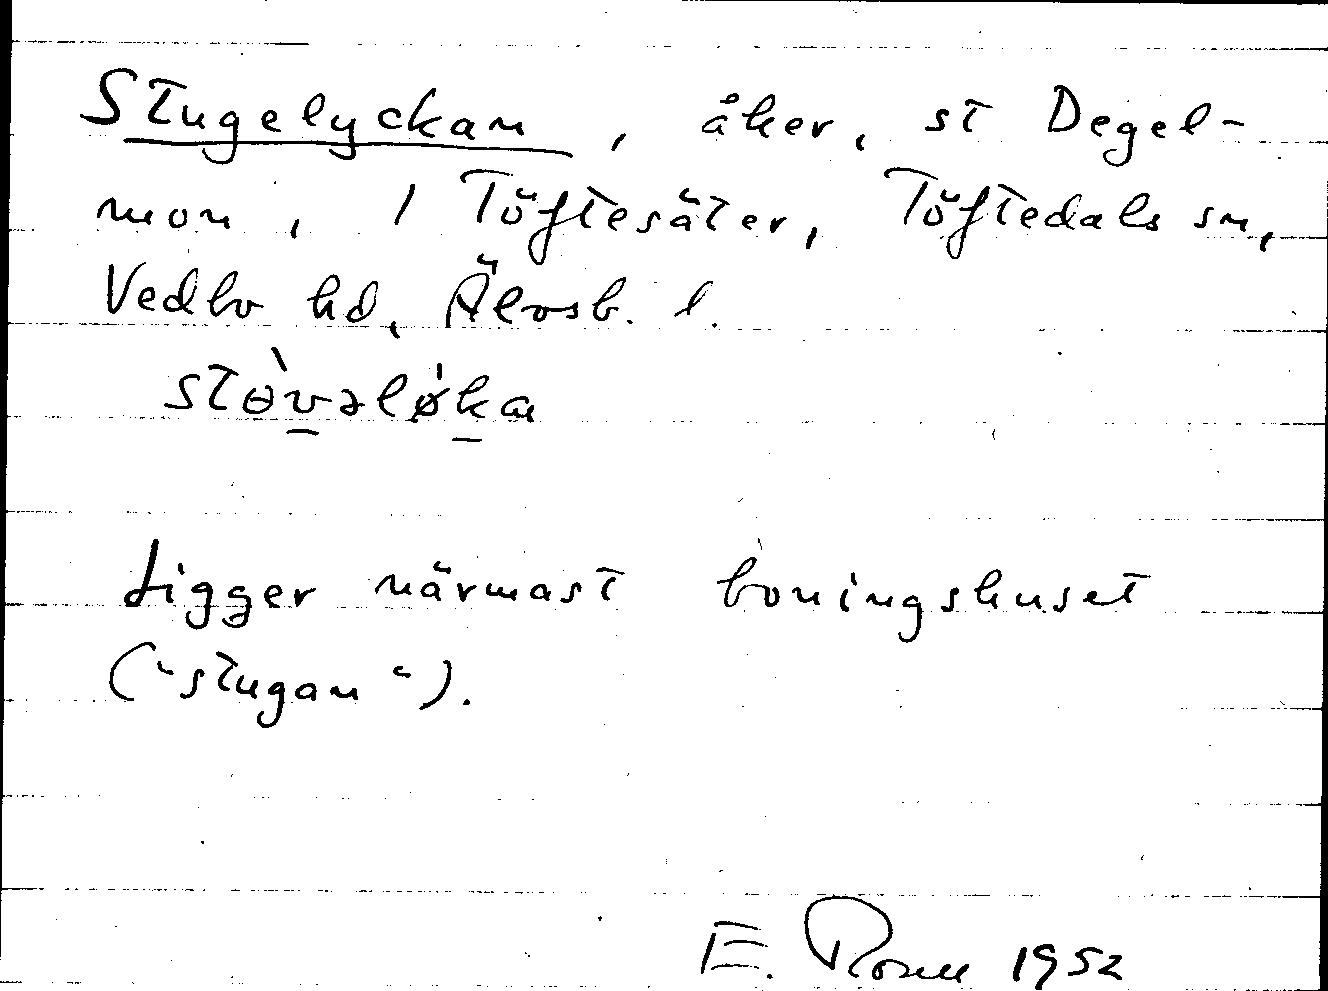 Stugelyckan, åker, st Degel-
mon, 1 Töftesäter, Töftedals sn,
Vedbo hd, Älvsb. l.
stòvəløka
Ligger närmast boningshuset
("stugan").
E. Rosell 1952